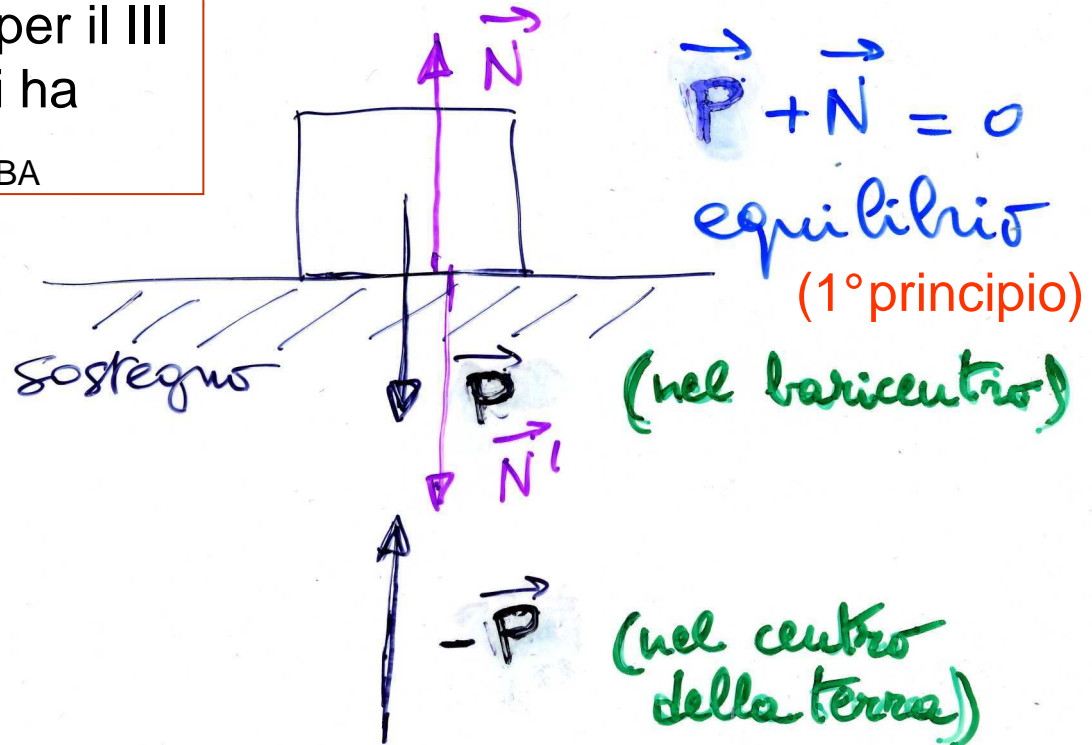 per il III
i ha
BA
N
P + N = 0
equilibrio
(1°principio)
sostegno
P
(nel baricentro)
N'
-P
(nel centro
della terra)